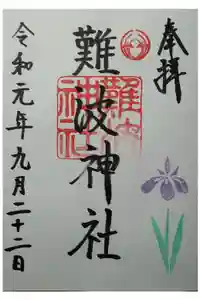 奉拝
難波神社
令和元年九月二十二日